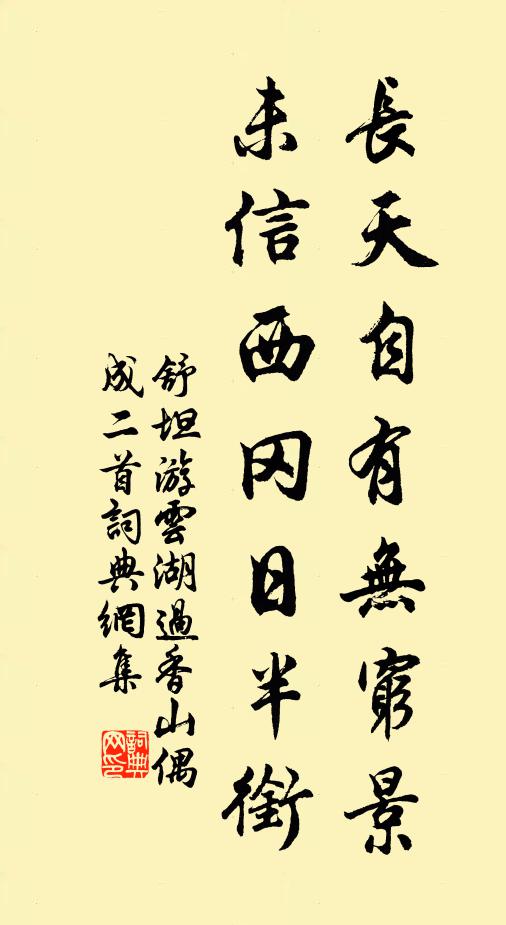 長天自有無窮景
未信西冈日半銜
舒坦游雲湖過香山偶
成二首詞典網集
詞典
网印